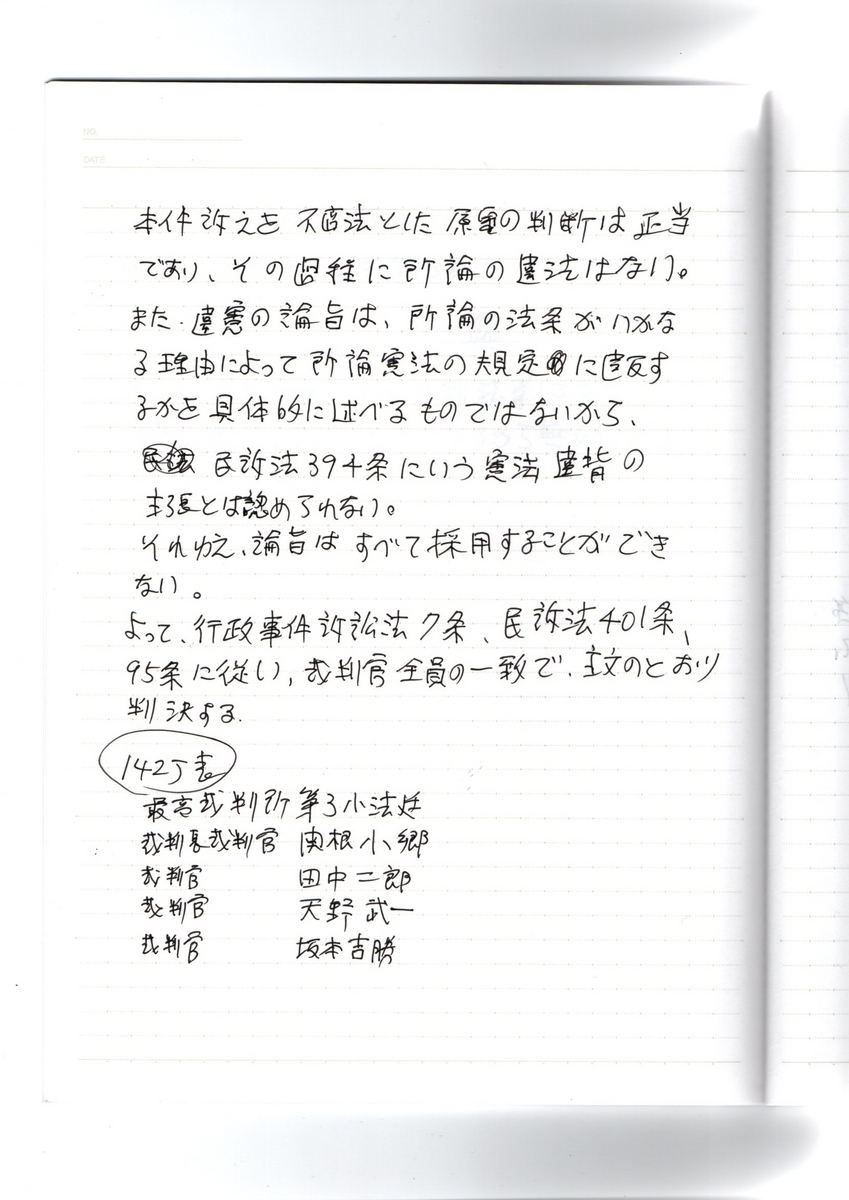 NO.
DATE
本件訴えを不適法とした原審の判断は正当
であり、その過程に所論の違法はない。
また、違憲の論旨は、所論の法条がいかな
る理由によって所論憲法の規定に違反す
るかを具体的に述べるものではないから、
民訴法394条にいう憲法違背の
主張とは認められない。
それゆえ、論旨はすべて採用することができ
ない。
よって、行政事件訴訟法7条、民訴法401条、
95条に従い、裁判官全員の一致で、主文のとおり
判決する。
142丁表
最高裁判所第3小法廷
裁判長裁判官 関根小郷
裁判官 田中二郎
裁判官 天野武一
裁判官 坂本吉勝